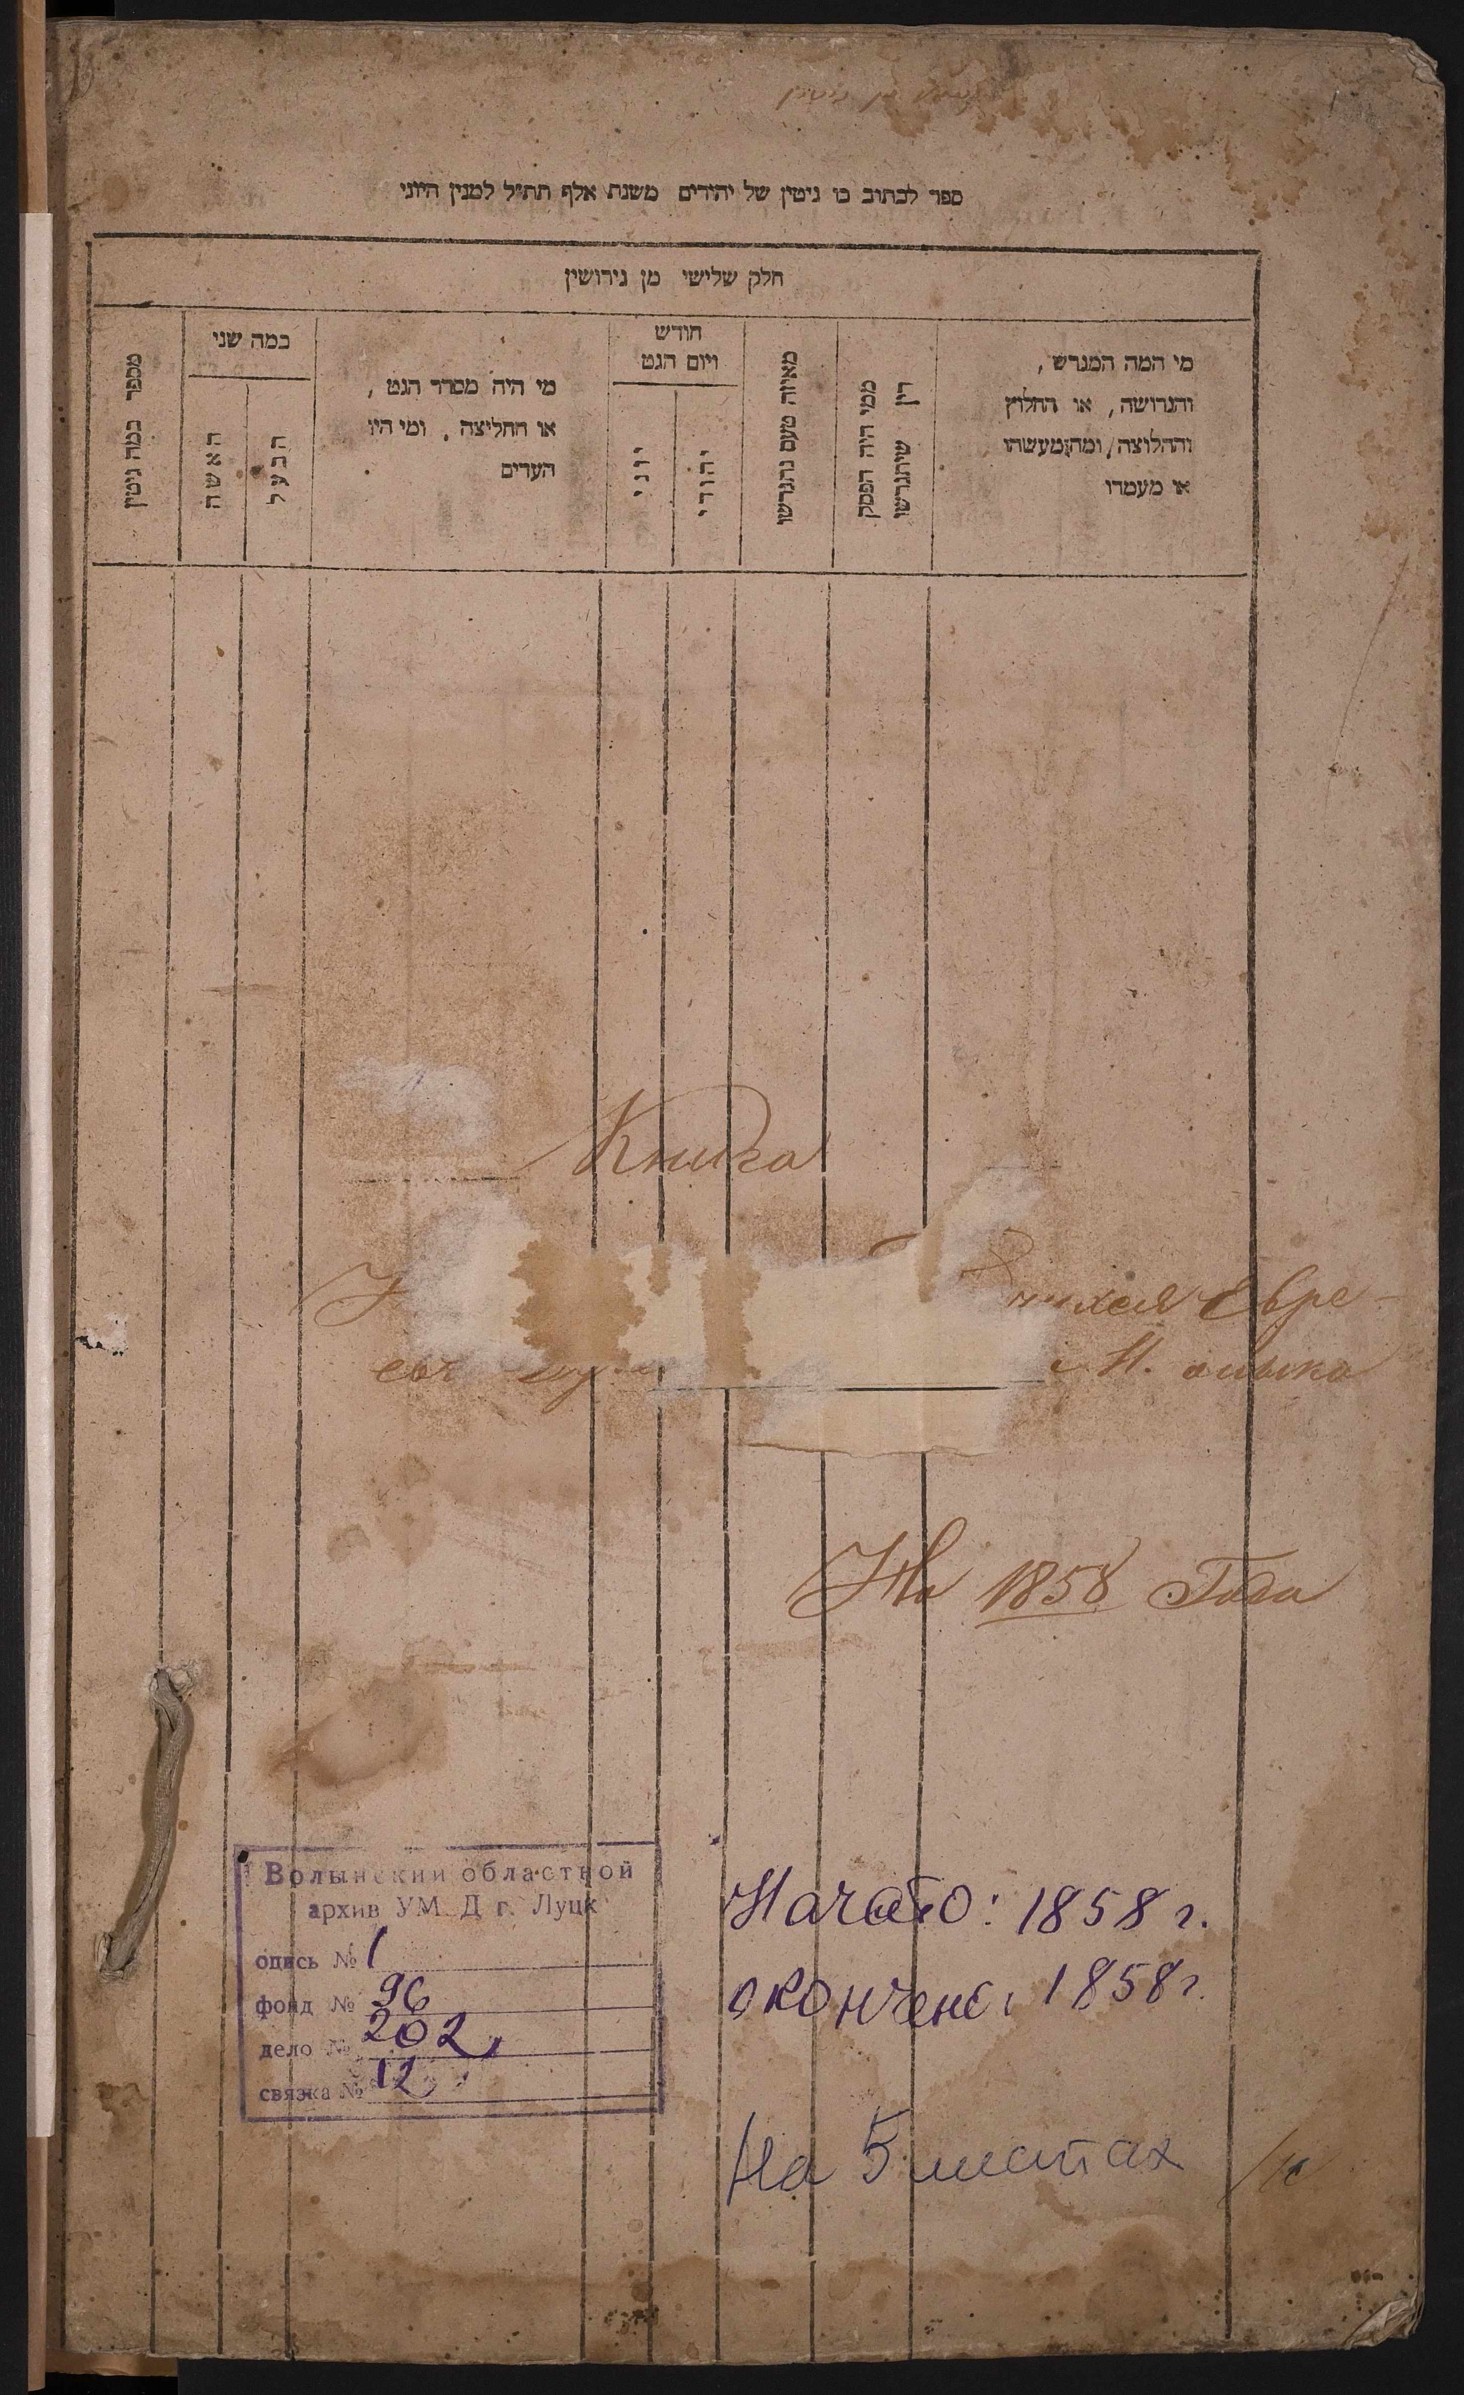 ספר לכתוב בו גיטין של יהודים משנת אלף תת״ל למנין היוני
חלק שלישי מן גירושין
מי המה המגרש,
והגרושה, או החלוץ
והחלוצה, ומה מעשהו
או מעמדו
ממי היה הפסק
דין שיתגרשו
מאיזה טעם נתגרשו
חודש
ויום הגט
יהודי
יוני
מי היה מסדר הגט,
או החליצה, ומי היו
העדים
כמה שני
הבעל
האשה
מספר כמה גיטין
Книга
Евре-
евъ
На 1858 Года
Волынский областной
архив УМ Д г. Луцк
опись № 1
фонд № 96
дело № 202
связка № 12
Начато: 1858 г.
окончено: 1858 г.
На 5 листах